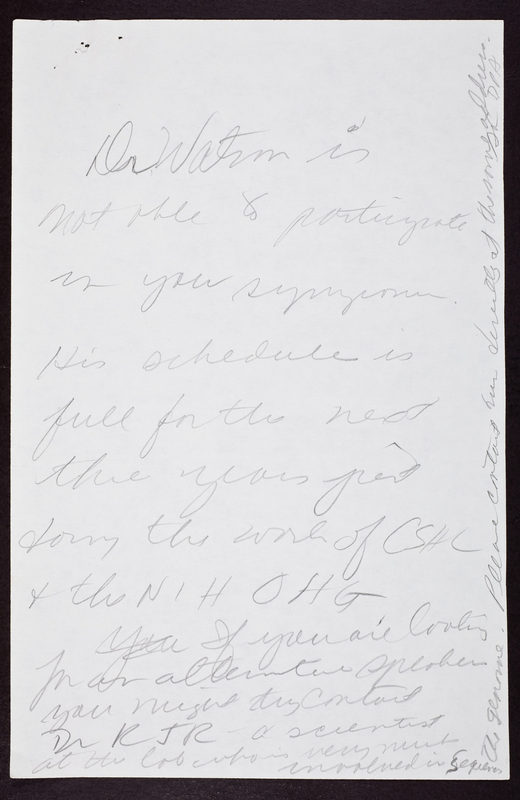 Dr. Watson is
not able to participate
in your symposium.
His schedule is
full for the next
three years just
doing the work of CSHL
& the NIH OHG
You If you are looking
for an alternative speaker
you might try contact
Dr RJR - a scientist
at the lab who is very much
involved in Sequencing
the genome. Please contact him directly at the same address.